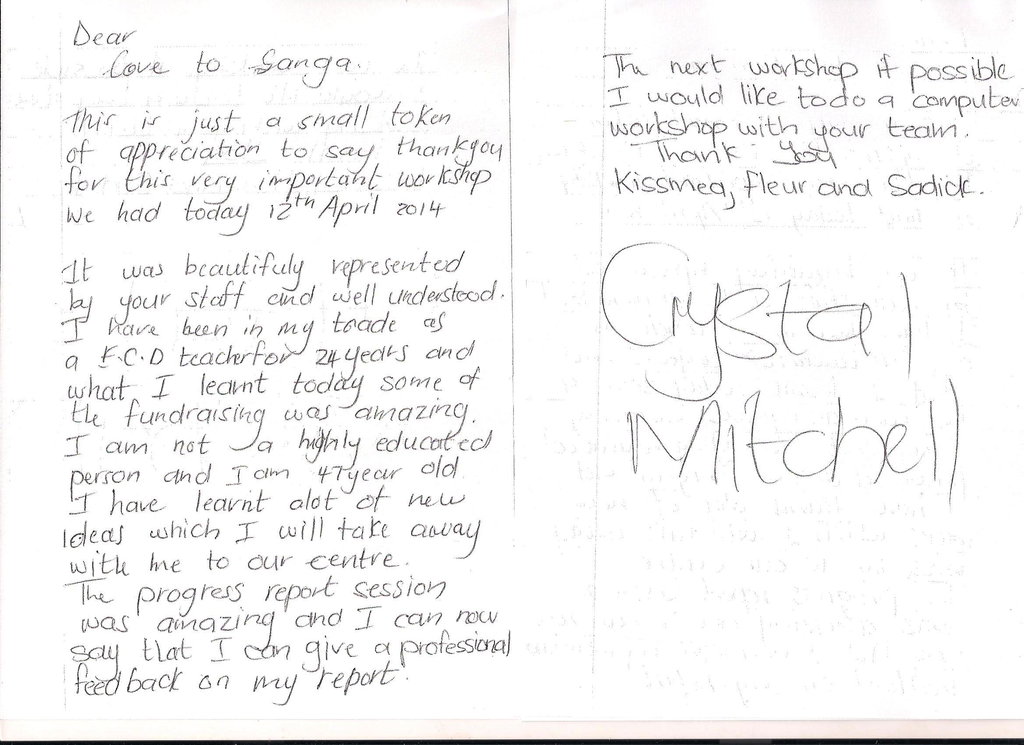 Dear
Love to Sanga.
This is just a small token
of appreciation to say thankyou
for this very important workshop
we had today 12th April 2014
It was beautifuly represented
by your staff and well understood.
I have been in my trade as
a E.C.D teacher for 24 years and
what I learnt today some of
the fundraising was amazing.
I am not a highly educated
person and I am 47 year old.
I have learnt alot of new
Ideas which I will take away
with me to our centre.
The progress report session
was amazing and I can now
say that I can give a professional
feed back on my report.
The next workshop if possible
I would like to do a computer
workshop with your team.
Thank You
Kissmea, fleur and Sadick.
Crystal
Mitchell